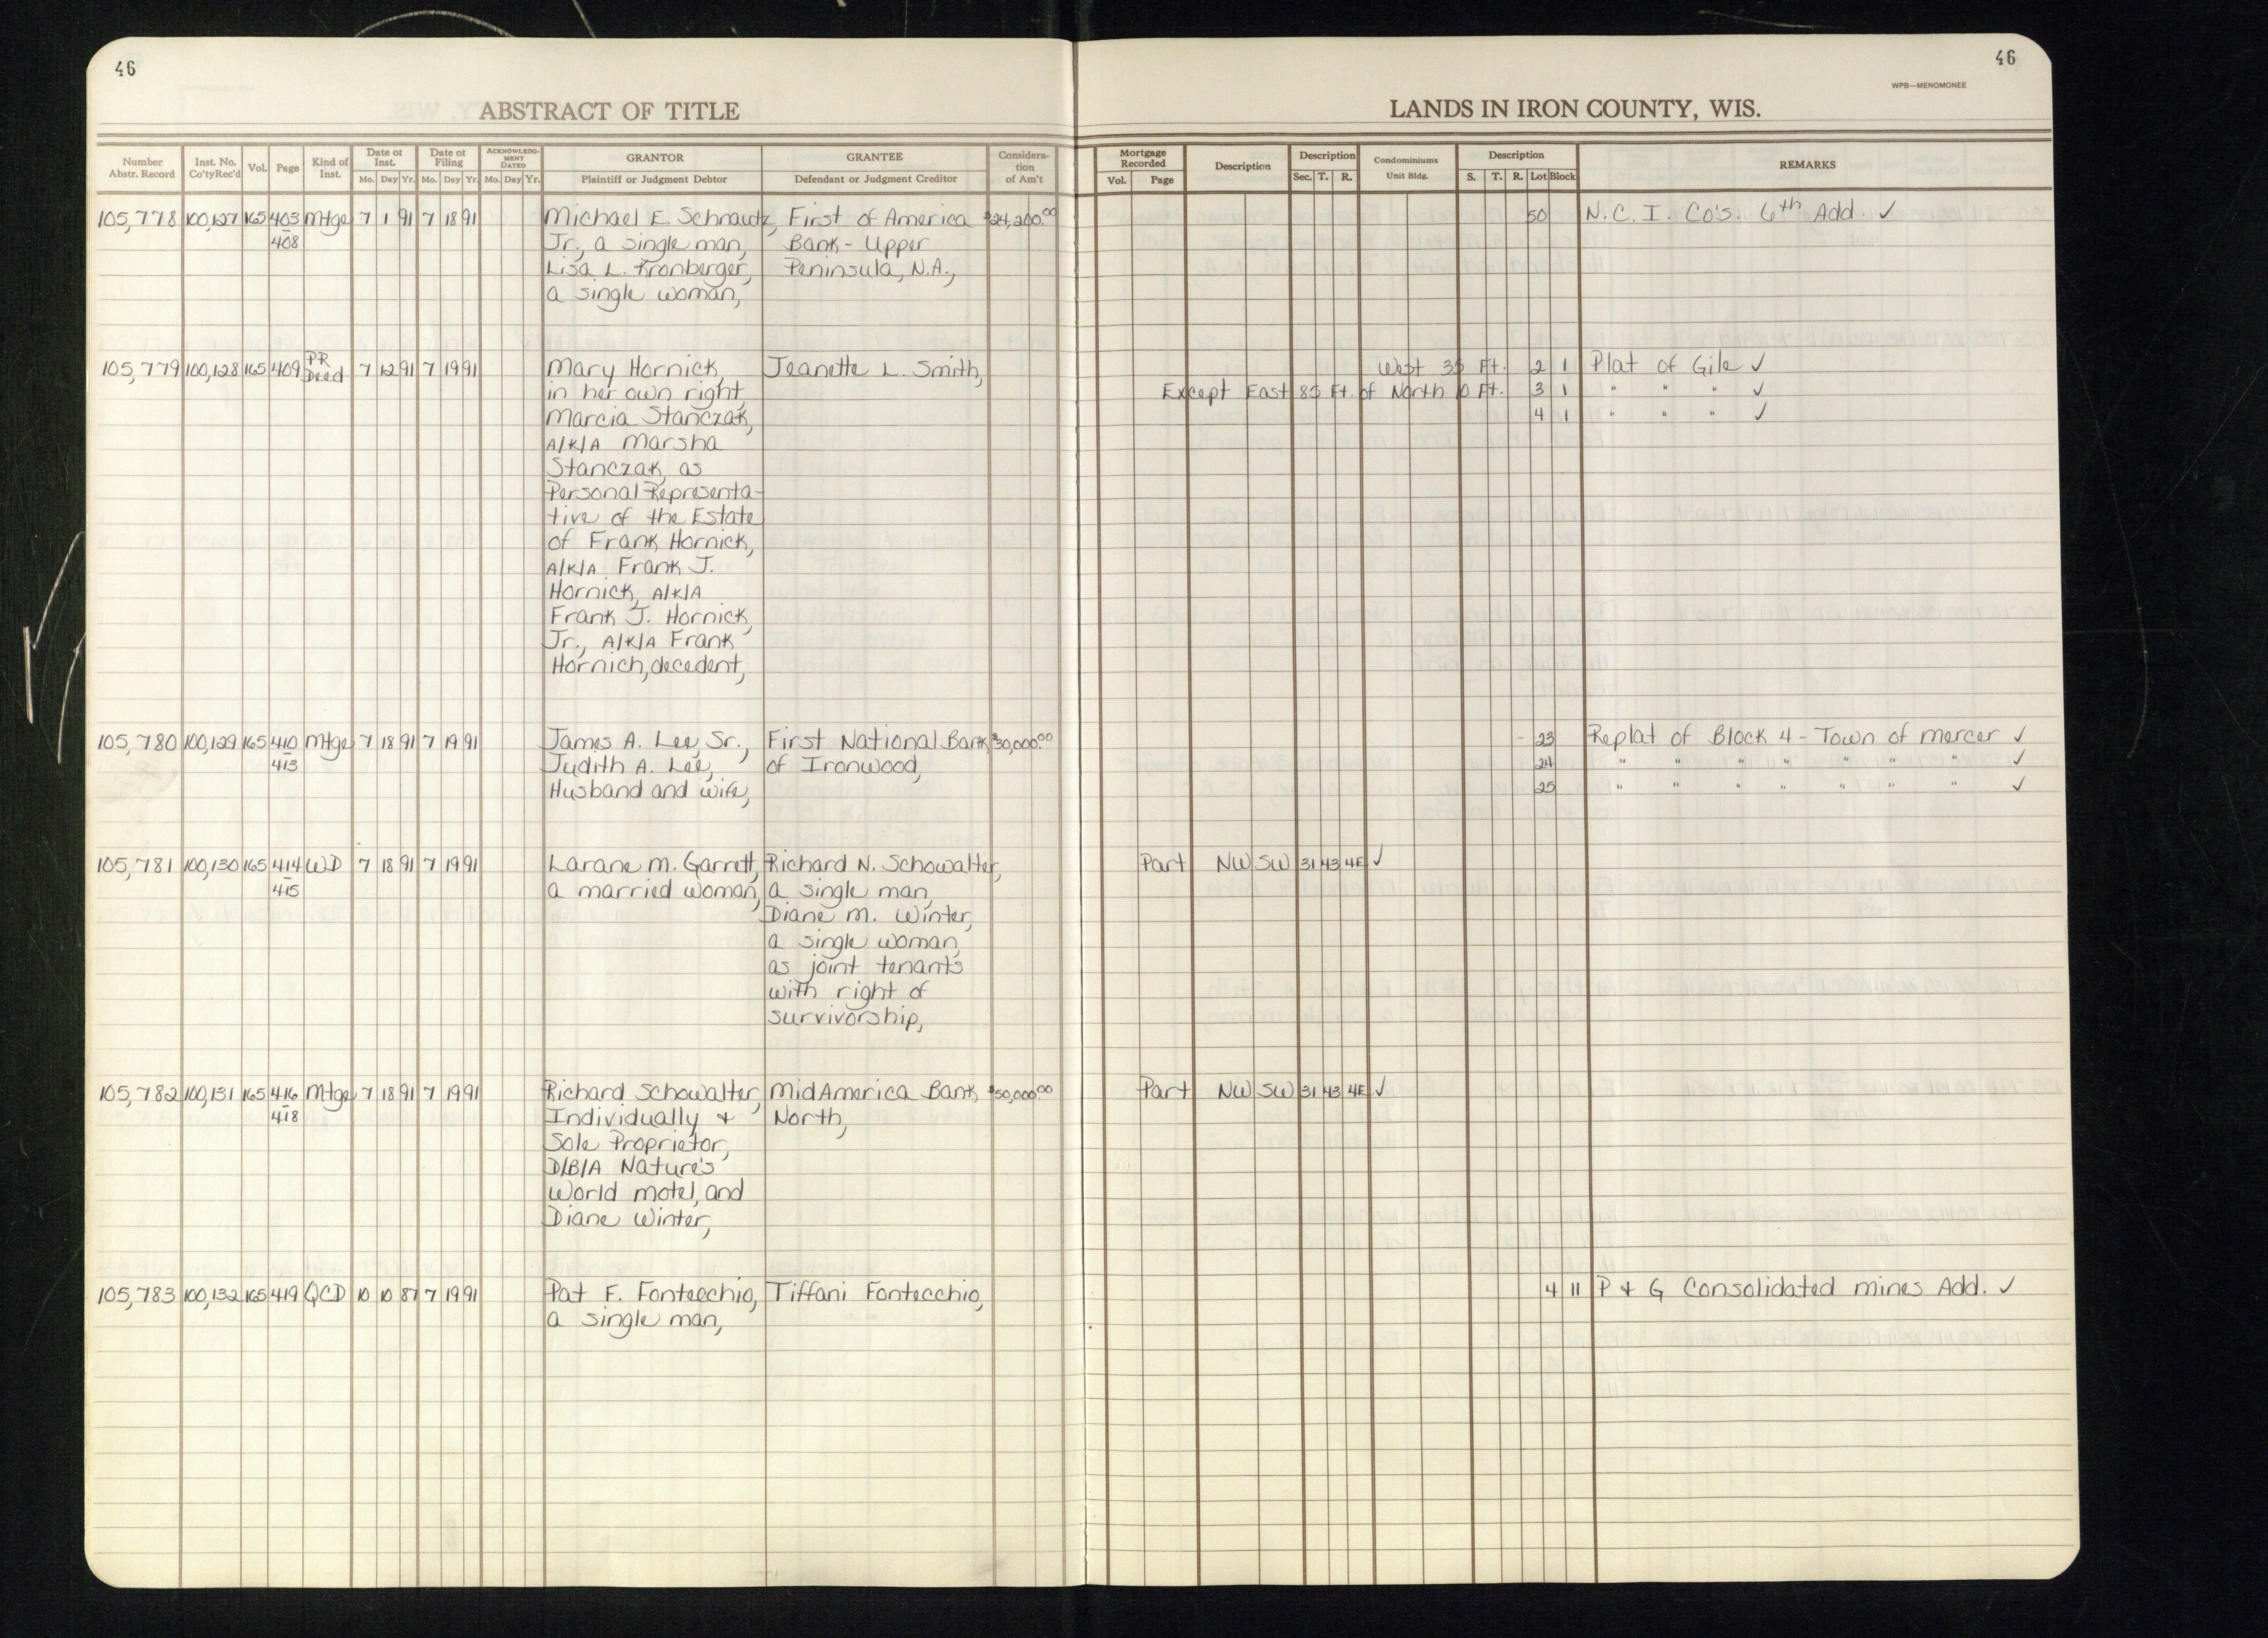 46
46
WPB—MENOMONEE
ABSTRACT OF TITLE
LANDS IN IRON COUNTY, WIS.
Number Abstr. Record | Inst. No. Co'tyRec'd | Vol. | Page | Kind of Inst. | Date of Inst. Mo. Day Yr. | Date of Filing Mo. Day Yr. | ACKNOWLEDGMENT DATED Mo. Day Yr. | GRANTOR Plaintiff or Judgment Debtor | GRANTEE Defendant or Judgment Creditor | Consideration of Am't | Mortgage Recorded Vol. Page | Description | Description Sec. T. R. | Condominiums Unit Bldg. | Description S. T. R. Lot Block | REMARKS
105,778 100,127 165 403 Mtge 7 1 91 7 18 91 Michael E. Schrautz, First of America $24,200.00 50 N.C.I. Co's. 6th Add. ✓
408 Jr., a single man, Bank - Upper
Lisa L. Kronberger, Peninsula, N.A.,
a single woman,
105,779 100,128 165 409 PR Deed 7 12 91 7 19 91 Mary Hornick, Jeanette L. Smith, West 35 Ft. 2 1 Plat of Gile ✓
in her own right, Except East 85 Ft. of North 10 Ft. 3 1 " " " ✓
Marcia Stanczak, 4 1 " " " ✓
A/K/A Marsha
Stanczak, as
Personal Representa-
tive of the Estate
of Frank Hornick,
A/K/A Frank J.
Hornick, A/K/A
Frank J. Hornick,
Jr., A/K/A Frank
Hornich, decedent,
105,780 100,129 165 410 Mtge 7 18 91 7 19 91 James A. Lee, Sr., First National Bank $30,000.00 23 Replat of Block 4 - Town of Mercer ✓
413 Judith A. Lee, of Ironwood, 24 " " " " " " " ✓
Husband and wife, 25 " " " " " " " ✓
105,781 100,130 165 414 WD 7 18 91 7 19 91 Larane M. Garrett, Richard N. Schowalter, Part NW SW 31 43 4E ✓
415 a married woman, a single man,
Diane M. Winter,
a single woman,
as joint tenants
with right of
survivorship,
105,782 100,131 165 416 Mtge 7 18 91 7 19 91 Richard Schowalter, MidAmerica Bank $50,000.00 Part NW SW 31 43 4E ✓
418 Individually & North,
Sole Proprietor,
D/B/A Nature's
World Motel, and
Diane Winter,
105,783 100,132 165 419 QCD 10 10 87 7 19 91 Pat F. Fontecchio, Tiffani Fontecchio, 4 11 P & G Consolidated Mines Add. ✓
a single man,